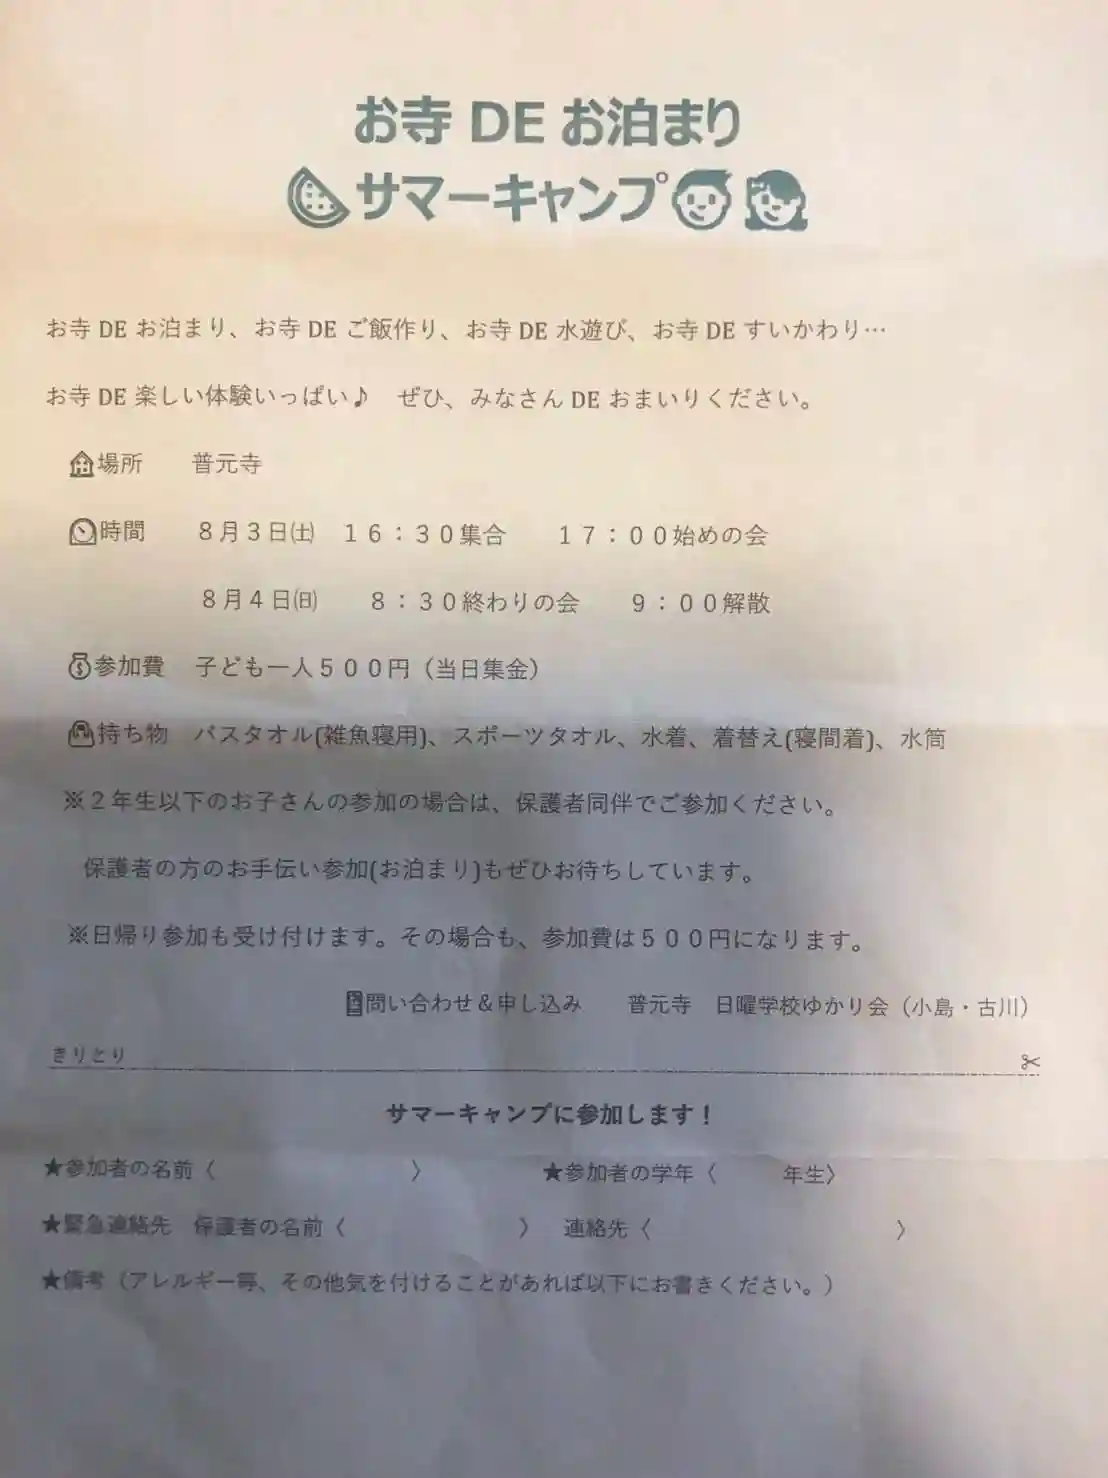 お寺 DE お泊まり
サマーキャンプ
お寺 DE お泊まり、お寺 DE ご飯作り、お寺 DE 水遊び、お寺 DE すいかわり…
お寺 DE 楽しい体験いっぱい♪　ぜひ、みなさん DE おまいりください。
場所　　普元寺
時間　　８月３日㈯　１６：３０集合　　１７：００始めの会
８月４日㈰　　８：３０終わりの会　　９：００解散
参加費　子ども一人５００円（当日集金）
持ち物　バスタオル(雑魚寝用)、スポーツタオル、水着、着替え(寝間着)、水筒
※２年生以下のお子さんの参加の場合は、保護者同伴でご参加ください。
保護者の方のお手伝い参加(お泊まり)もぜひお待ちしています。
※日帰り参加も受け付けます。その場合も、参加費は５００円になります。
問い合わせ＆申し込み　　普元寺　日曜学校ゆかり会（小島・古川）
きりとり
サマーキャンプに参加します！
★参加者の名前〈　　　　　　　　〉　　　　　★参加者の学年〈　　　年生〉
★緊急連絡先　保護者の名前〈　　　　　　　　〉　連絡先〈　　　　　　　　　　　〉
★備考（アレルギー等、その他気を付けることがあれば以下にお書きください。）